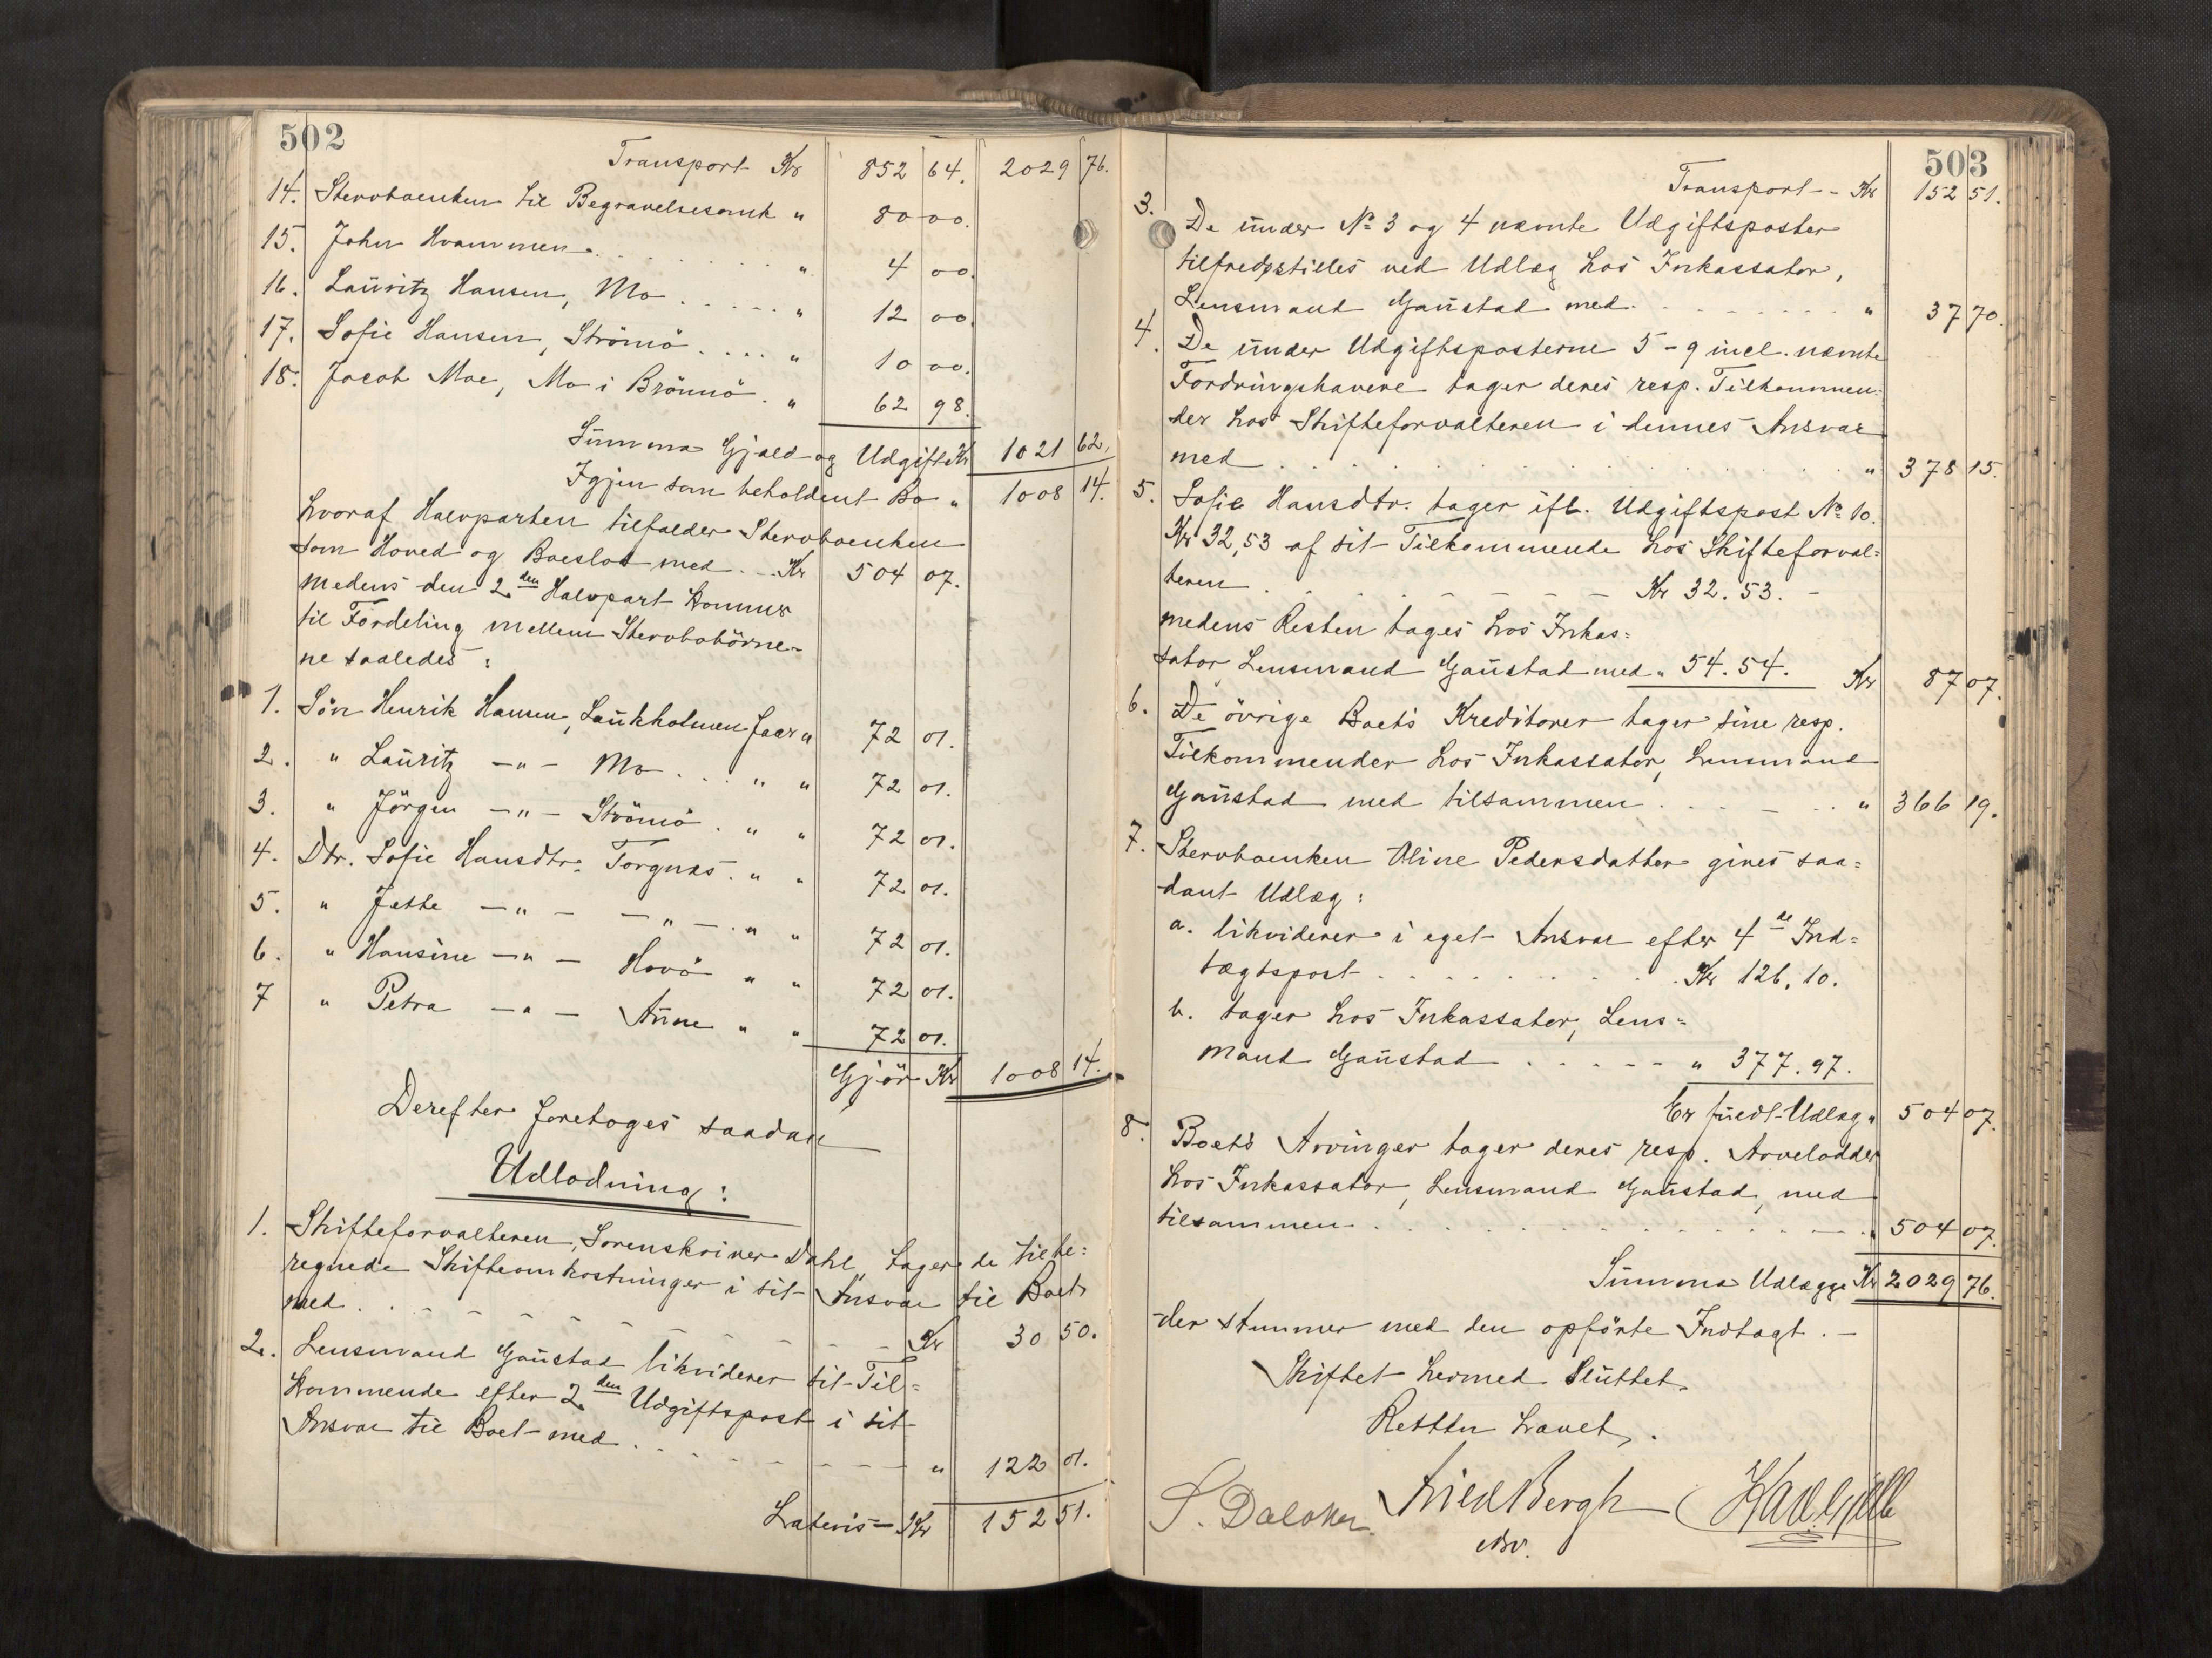 502
Transport Kr 852 64. 2029 76.
14. Stervboenken til Begravelsesomk " 80 00.
15. John Hvammen . . . . . . " 4 00.
16. Lauritz Hansen, Mo . . . . . " 12 00.
17. Sofie Hansen, Strömö . . . . " 10 00.
18. Jacob Moe, Mo i Brönnö . " 62 98.
Summa Gjæld og Udgift Kr 1021 62.
Igjen som beholdent Bo " 1008 14.
hvoraf Halvparten tilfalder Stervboenken
som Hoved og Boeslod med . . Kr 504 07.
medens den 2den Halvpart kommer
til Fordeling mellem Stervbobörne-
ne saaledes :
1. Sön Henrik Hansen, Laukholmen faar " 72 01.
2. " Lauritz -"- Mo . . . " " 72 01.
3. " Jörgen -"- Strömö . " " 72 01.
4. Dtr. Sofie Hansdtr. Torgnæs . " " 72 01.
5. " Jette -"- -"- . " " 72 01.
6. " Hansine -"- Havö " " 72 01.
7 " Petra -"- Aune " " 72 01.
Gjör Kr 1008 14.
Derefter foretoges saadan
Udlodning :
1. Skifteforvalteren, Sorenskriver Dahl, tager de tilbe=
regnede Skifteomkostninger i sit Ansvar til Boet
med . . - - - - - - - Kr 30 50.
2. Lensmand Gaustad likviderer sit Til=
kommende efter 2den Udgiftspost i sit
Ansvar til Boet med . . . - - - - - - " 122 01.
Lateris - Kr 152 51.
503
Transport - Kr 152 51.
3. De under No 3 og 4 nævnte Udgiftsposter
tilfredsstilles ved Udlæg hos Inkassator,
Lensmand Gaustad med . . . . . . . " 37 70.
4. De under Udgiftsposterne 5 - 9 incl. nævnte
Fordringshavere tager deres resp. Tilkommen-
der hos Skifteforvalteren i dennes Ansvar
med . . . . . . . . . . . . " 378 15.
5. Sofie Hansdtr. tager ifl. Udgiftspost No 10.
Kr 32,53 af sit Tilkommende hos Skifteforval=
teren . . . . . - - - - Kr 32.53. -
medens Resten tages hos Inkas=
sator Lensmand Gaustad med " 54.54. Kr 87 07.
6. De övrige Boets Kreditorer tager sine resp.
Tilkommender hos Inkassator, Lensmand
Gaustad med tilsammen . . . - . . " 366 19.
7. Stervboenken Oline Pedersdatter gives saa=
dant Udlæg :
a. likviderer i eget Ansvar efter 4de Ind=
tægtspost . . . . . . . . . Kr 126.10.
b. tager hos Inkassator, Lens=
mand Gaustad . . . . - - " 377.97.
Er fuldt Udlæg " 504 07.
8. Boets Arvinger tager deres resp. Arvelodder
hos Inkassator, Lensmand Gaustad, med
tilsammen . . . . . . . . - - - . " 504 07.
Summa Udlægge Kr 2029 76.
der stemmer med den opförte Indtægt . -
Skiftet hermed Sluttet.
Retten hævet.
S. Dal
Bergh